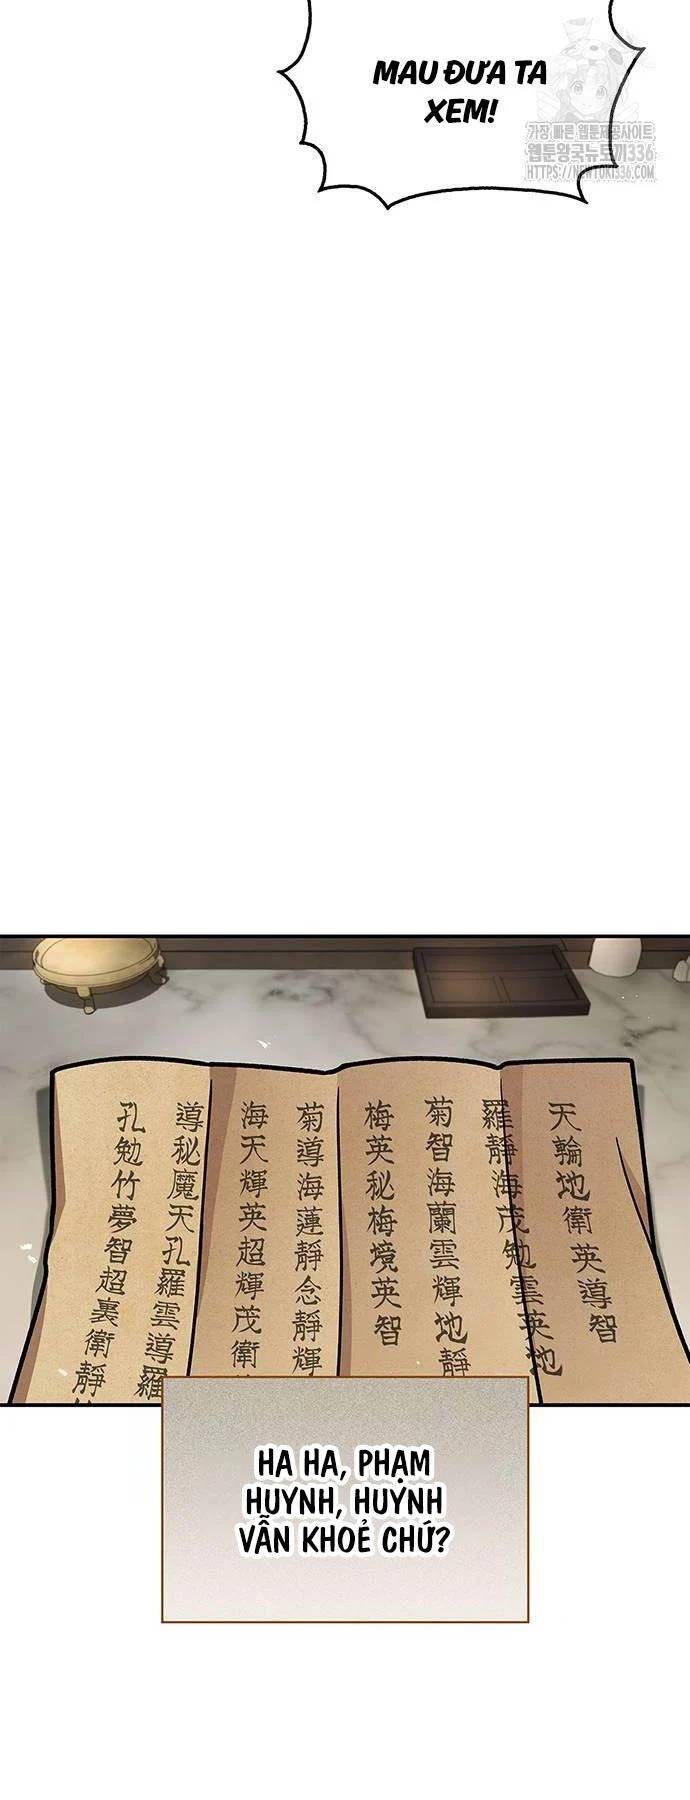 MAU ĐƯA TA
XEM!
가장 빠른 웹툰제공사이트
웹툰왕국뉴토끼336
HTTPS://NEWTOKI336.COM
天輪地衛英導智
羅靜海茂勉雲英地
菊智海蘭雲輝地靜
梅英秘梅境英智
菊導海蓮靜念靜輝
海天輝英超輝茂衛
導秘魔天孔羅雲導羅
孔勉竹夢智超裏衛靜
HA HA, PHẠM
HUYNH, HUYNH
VẪN KHOẺ CHỨ?